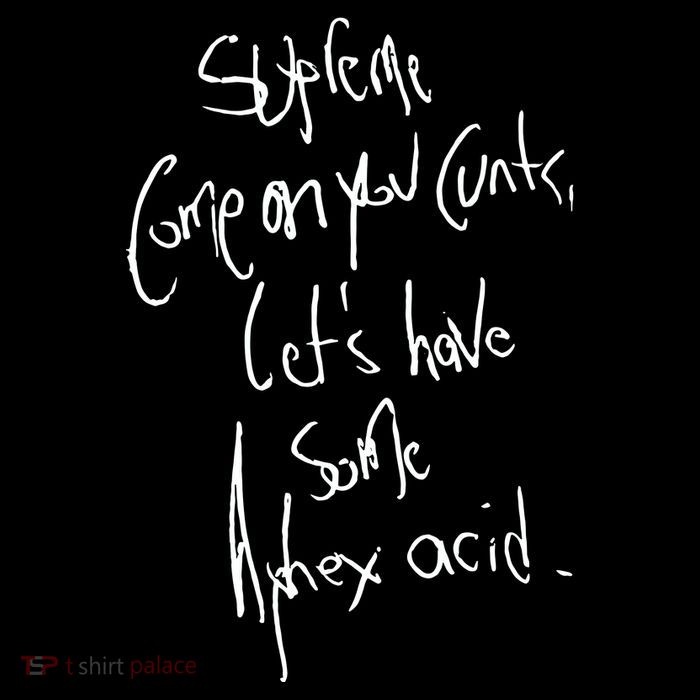 Supreme
Come on you Cunts,
Let's have
Some
Aphex acid.
TSP t shirt palace